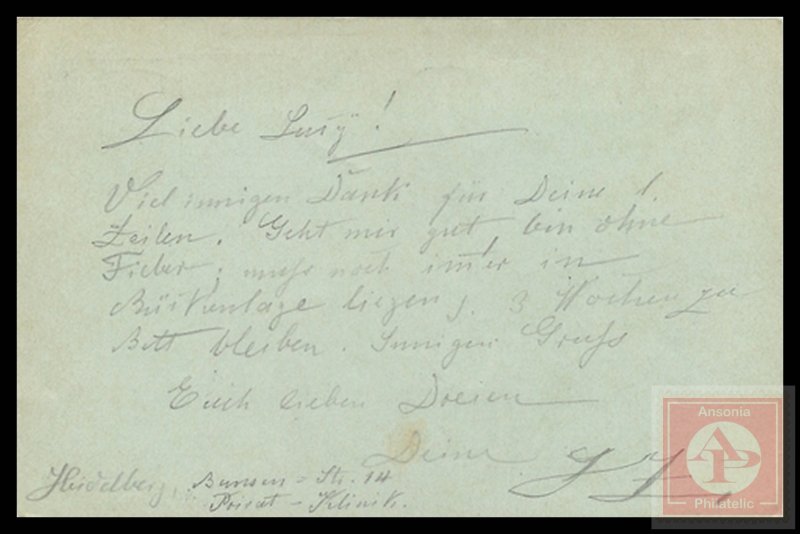 Liebe Lusy!
Viel innigen Dank für Deine l.
Zeilen. Geht mir gut, bin ohne
Fieber; muss noch immer in
Rückenlage liegen, 3 Wochen zu
Bett bleiben. Innigen Gruss
Euch lieben Dreien
Deine
Heidelberg, Bunsen-Str. 14
Privat-Klinik.
Ansonia
AP
Philatelic